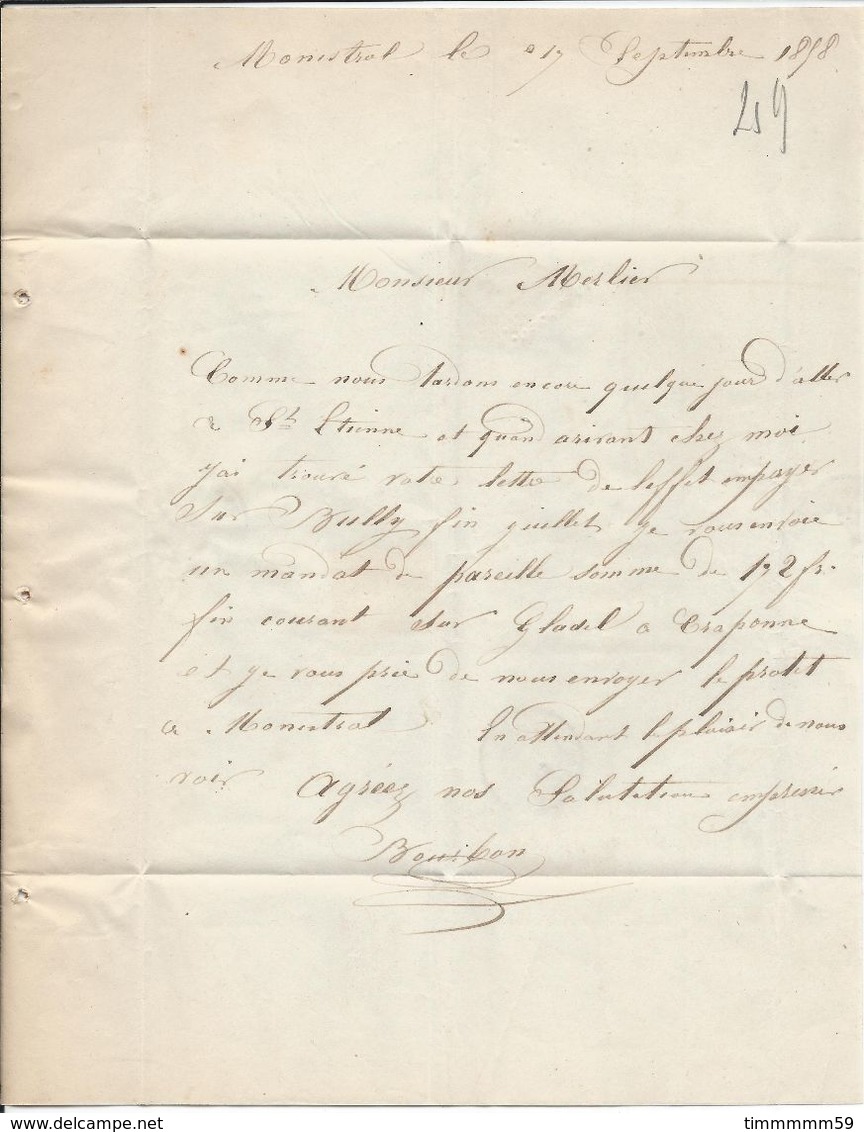 Monistrol le 17 Septembre 1858
259
Monsieur Merlier
Comme nous tardons encore quelque jour d'aller
a St Etienne et quand arivant chez moi
j'ai trouvé votre lettre de l'effet empayer
sur Bully fin juillet je vous envoie
un mandat de pareille somme de 172 fr.
fin courant sur Gladel a Craponne
et je vous prie de nous envoyer le protet
a Monistrol En attendant le plaisir de nous
voir Agréez nos Salutations empressé
timmmmm59